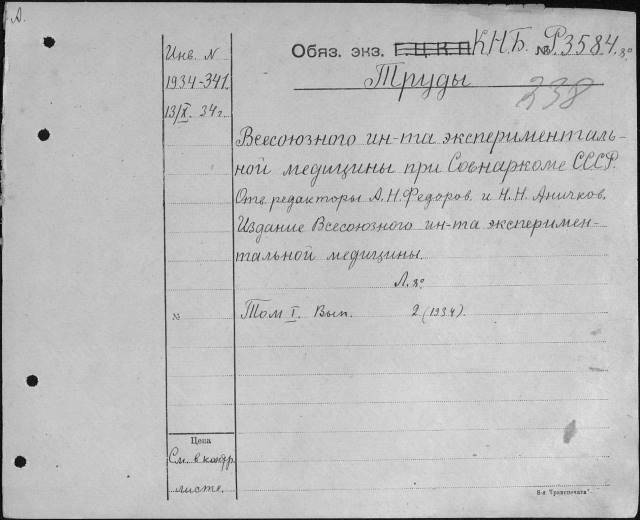 А.
Инв. N
1934-341.
13/X. 34г.
Обяз. экз. Г.Ц.К.П. К.Н.Б. № Р.3584. 8°
Труды
238
Всесоюзного ин-та эксперименталь-
ной медицины при Совнаркоме СССР.
Отв. редакторы А.Н.Федоров. и Н.Н. Аничков.
Издание Всесоюзного ин-та эксперимен-
тальной медицины.
Л. 8°
№ Том I. Вып. 2 (1934).
Цена
См. в контр.
листе.
8-я "Транспечати"